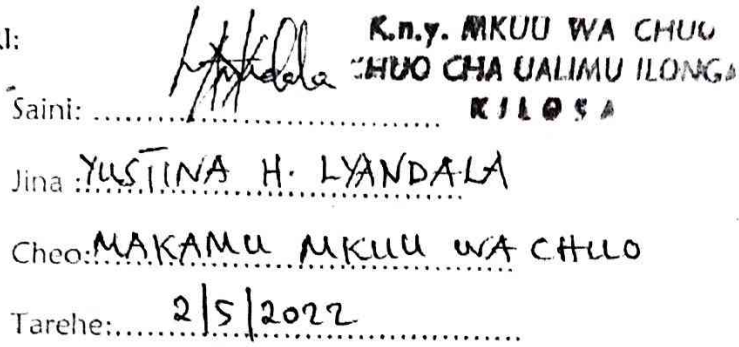 I:
K.n.y. MKUU WA CHUO
CHUO CHA UALIMU ILONGA
KILOSA
Saini: ........................................
Jina : YUSTINA H. LYANDALA
Cheo: MAKAMU MKUU WA CHUO
Tarehe:...... 2/5/2022